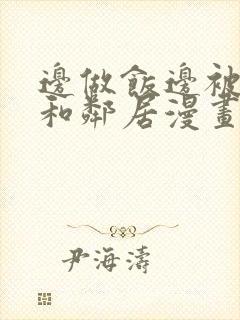 邊做飯邊被
和鄰居漫畫
尹海濤